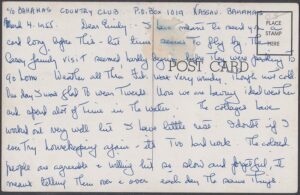 c/o BAHAMAS COUNTRY CLUB P.O. Box 1019 NASSAU. BAHAMAS
March 4 Dear Emily I have meant to send you a
card long before this - but time seems to fly by. The
family visit seemed before they were having to
go home Weather all this Feb. was very windy. Though not cold
One day I was glad to wear Tweeds Now we are having ideal weather
and spend a lot of time in the water. The cottages have
worked out very well but I have little rest I doubt if I
would try Housekeeping again - It's too hard work. The colored
people are agreeable & willing but so slow and forgetful. It
means telling them over & over each day the same things.
PLACE
STAMP
HERE
POST CARD